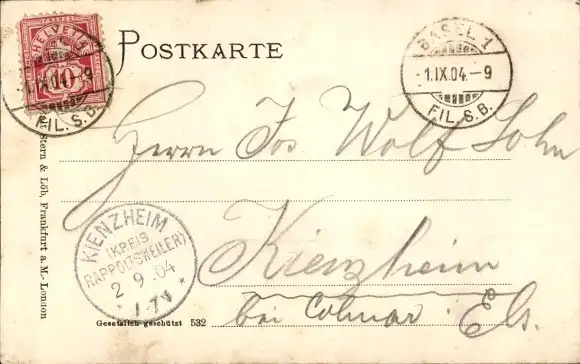 HELVETIA
10
POSTKARTE
BASEL 1
1.IX.04.-9
FIL. S.B.
IX.04.-9
FIL. S.B.
Herrn Jos. Wolf Sohn
Kienzheim
bei Colmar Els.
KIENZHEIM
(KREIS
RAPPOLTSWEILER)
2 9 04
Stern & Löb, Frankfurt a. M.-London
Gesetzlich geschützt 532